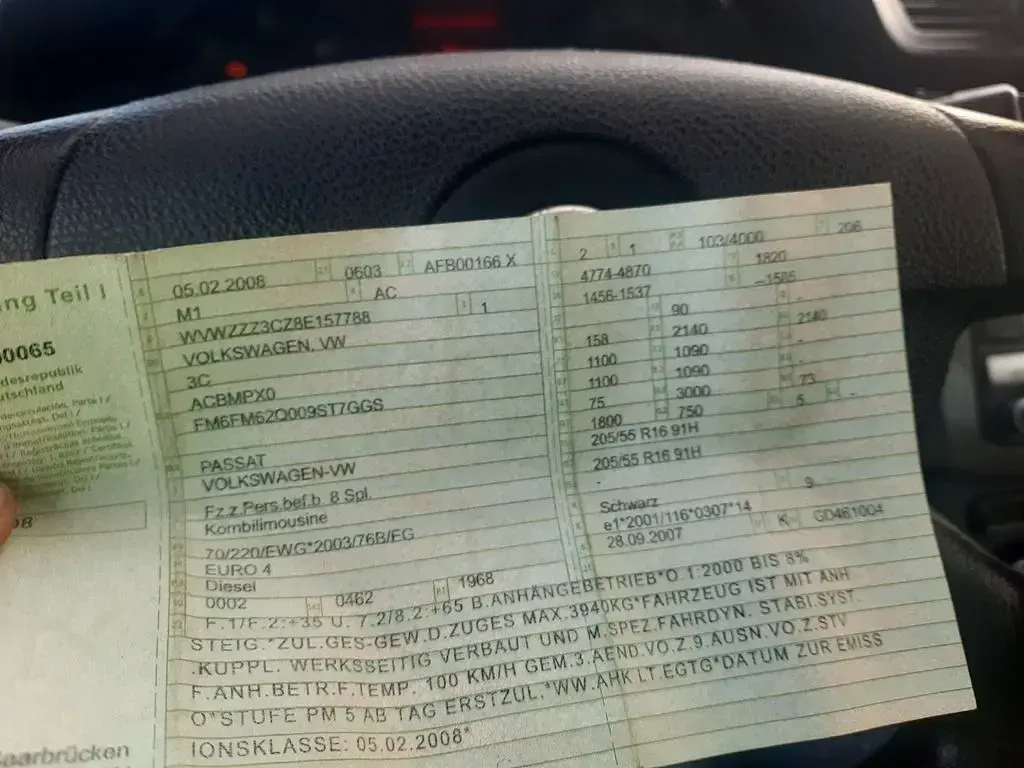 ng Teil I
0065
desrepublik
utschland
08
aarbrücken
05.02.2008 0603 AFB00166 X
M1 AC
WVWZZZ3CZ8E157788 1
VOLKSWAGEN, VW
3C
ACBMPX0
FM6FM62Q009ST7GGS
PASSAT
VOLKSWAGEN-VW
Fz.z.Pers.bef.b. 8 Spl.
Kombilimousine
70/220/EWG*2003/76B/EG
EURO 4
Diesel
0002 0462 1968
2 1 103/4000 206
4774-4870 1820
1456-1537
90
158 2140 2140
1100 1090
1100 1090
75 3000 73
1800 750 5 -
205/55 R16 91H
205/55 R16 91H
-
Schwarz 9
e1*2001/116*0307*14
28.09.2007 K GD461004
F.1/F.2:+35 U. 7.2/8.2:+65 B.ANHÄNGEBETRIEB*O.1:2000 BIS 8%
STEIG.*ZUL.GES-GEW.D.ZUGES MAX.3940KG*FAHRZEUG IST MIT ANH
.KUPPL. WERKSSEITIG VERBAUT UND M.SPEZ.FAHRDYN. STABI.SYST
F.ANH.BETR.F.TEMP. 100 KM/H GEM.3.AEND.VO.Z.9.AUSN.VO.Z.STV
O*STUFE PM 5 AB TAG ERSTZUL.*WW.AHK LT.EGTG*DATUM ZUR EMISS
IONSKLASSE: 05.02.2008*